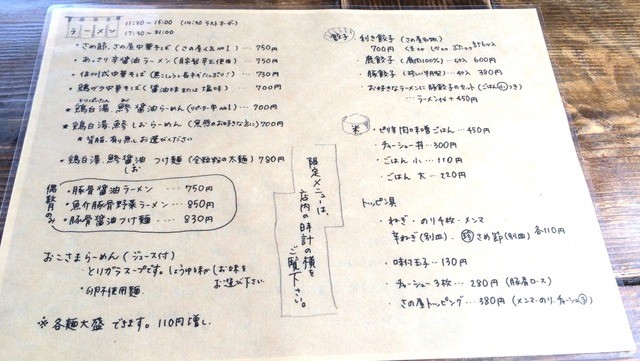 ラーメン
11:30〜15:00 (14:30 ラストオーダー)
17:30〜21:00
・さめ節、さの屋中華そば (さの屋人気No1) … 750円
・あっさり辛醤油ラーメン … 750円
・信州式中華そば (黒こしょう・長ネギたっぷり!) … 730円
・鶏ガラ中華そば (醤油味または塩味) … 700円
★鶏白湯、鯵醤油らーめん (リピーター率No1) … 700円
★鶏白湯、鯵しおらーめん 700円
★背脂、有り無しお選びください
・鶏白湯、鯵醤油 しお つけ麺 (全粒粉の太麺) 780円
偶数月のみ
・豚骨醤油ラーメン … 750円
・魚介豚骨野菜ラーメン … 850円
・豚骨醤油つけ麺 … 830円
おこさまらーめん (ジュース付)
・とりガラスープです。しょうゆ味かしお味をお選び下さい
・卵不使用麺
※各麺大盛できます。110円増し。
限定メニューは、
店内の時計の横を
ご覧下さい。
餃子
・利き餃子 (さの屋名物)
700円
・鹿餃子 (鹿肉100%) … 4ケ入 600円
・豚餃子 … 4ケ入 380円
・お好きなラーメンに豚餃子のセット (ごはん小つき)
ラーメン代+450円
米
・ピリ辛肉味噌ごはん … 450円
・チャーシュー丼 … 300円
・ごはん 小 … 110円
・ごはん 大 … 220円
トッピン具
・ねぎ・のり4枚・メンマ
辛ねぎ(別皿)・さめ節(別皿) 各110円
・味付玉子 … 130円
・チャーシュー3枚 … 280円 (豚肩ロース)
・さの屋トッピング … 380円 (メンマ・のり・チャーシュー③)